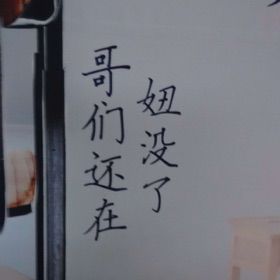 哥们还在
妞没了